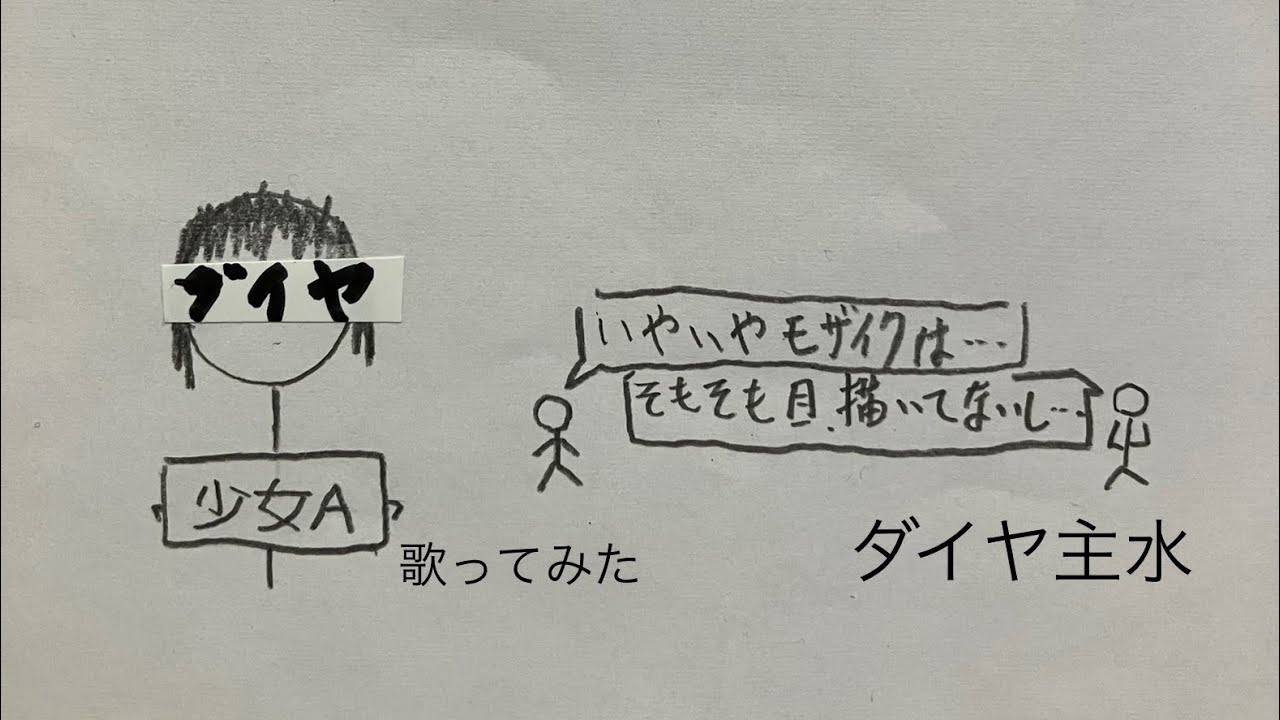 ダイヤ
少女A
歌ってみた
いやいやモザイクは…
そもそも目描いてないし…
ダイヤ主水